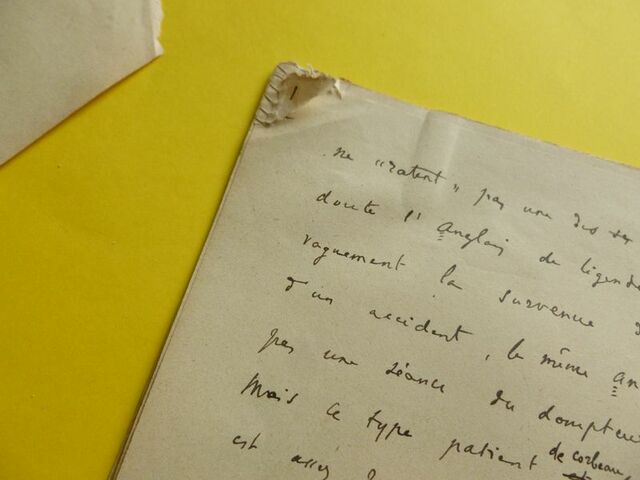 ne "ratent" pas une des
doute l'anglais de légende
vaguement la survenue
d'un accident, le même an
pas une séance du dompteur
Mais ce type patient de corbeau
est assez